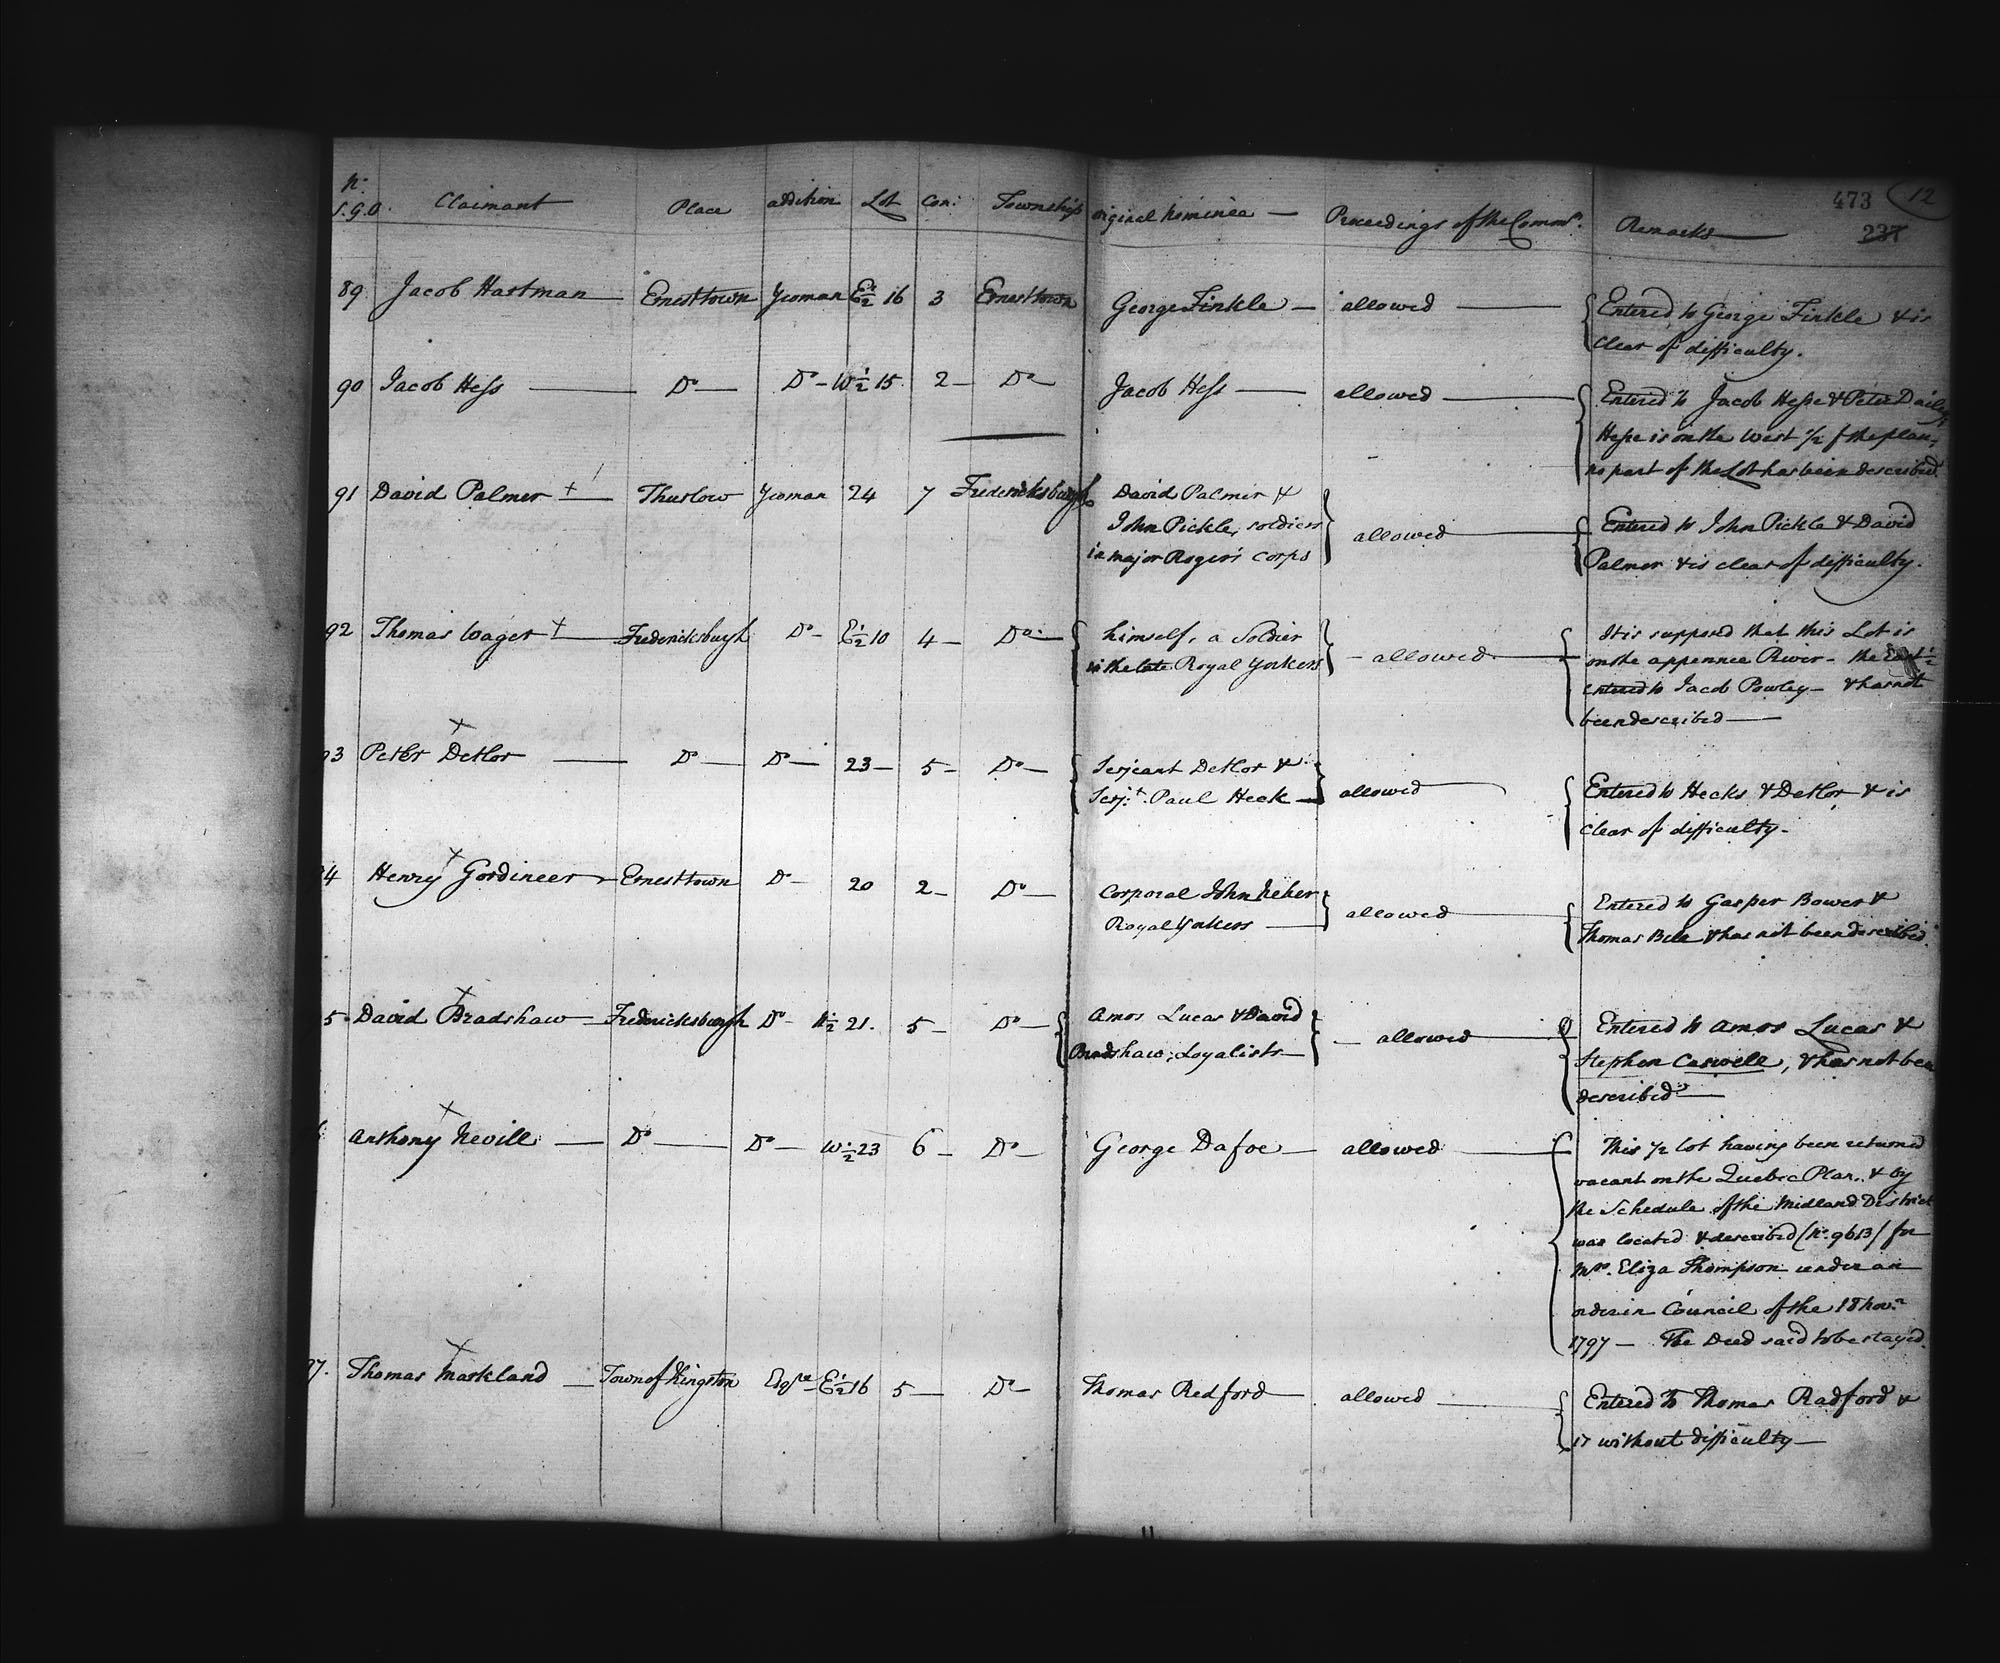 473 12
237
No. S.G.O. Claimant Place addition Lot Con: Township original Nominee — Proceedings of the Commrs. Remarks
89 Jacob Hartman Ernesttown Yeoman Et ½ 16 3 Ernesttown George Finkle — allowed — Entered to George Finkle & is
clear of difficulty.
90 Jacob Hess — Do — Do — W ½ 15 2 — Do — Jacob Hess — allowed — Entered to Jacob Hesse & Peter Dailey,
Hesse is on the West 1/2 of the plan,
no part of the Lot has been described.
91 David Palmer + — Thurlow Yeoman 24 7 Fredericksburgh David Palmer &
John Pickle, soldiers allowed Entered to John Pickle & David
in major Rogers's corps Palmer & is clear of difficulty.
92 Thomas Wager + — Fredericksburgh Do — E ½ 10 4 — Do. himself, a Soldier It is supposed that this Lot is
in the late Royal Yorkers — allowed. on the appennee River — the East ½
entered to Jacob Powley — & has not
been described —
+
93 Peter Detlor — Do — Do — 23 — 5 — Do — Serjeant Detlor &
Serjt. Paul Heck — allowed Entered to Hecks & Detlor & is
clear of difficulty.
+
94 Henry Gordineer Ernesttown Do — 20 2 — Do — Corporal John Neher Entered to Gasper Bower &
Royal Yorkers — allowed Thomas Bell & has not been described.
+
5 David Bradshaw — Fredericksburgh Do — N ½ 21. 5 — Do — Amos Lucas & David Entered to Amos Lucas &
Bradshaw, Loyalists — allowed Stephen Caswell, & has not been
described —
+
6 Anthony Nevill — Do — Do — W ½ 23 6 — Do — George Dafoe — allowed This 1/2 lot having been returned
vacant on the Quebec Plan, & by
the Schedule of the Midland District
was located & described (No. 9613) for
Mrs. Eliza Thompson under an
order in Council of the 18 Novr.
1797 — The Deed said to be stayed.
+
97. Thomas Markland — Town of Kingston Esqre — E ½ 16 5 — Do — Thomas Redford — allowed — Entered to Thomas Radford &
is without difficulty —